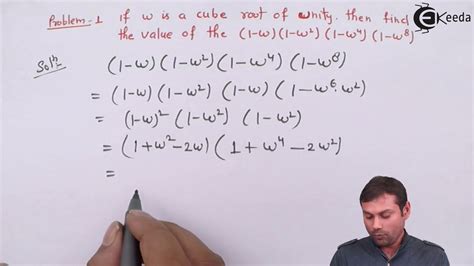 Problem-1 if ω is a cube root of unity, then find
the value of the (1-ω)(1-ω²)(1-ω⁴)(1-ω⁸)
Keeda
Solⁿ
(1-ω)(1-ω²)(1-ω⁴)(1-ω⁸)
= (1-ω)(1-ω²)(1-ω)(1-ω⁶·ω²)
= (1-ω)²(1-ω²)(1-ω²)
= (1+ω²-2ω)(1+ω⁴-2ω²)
=